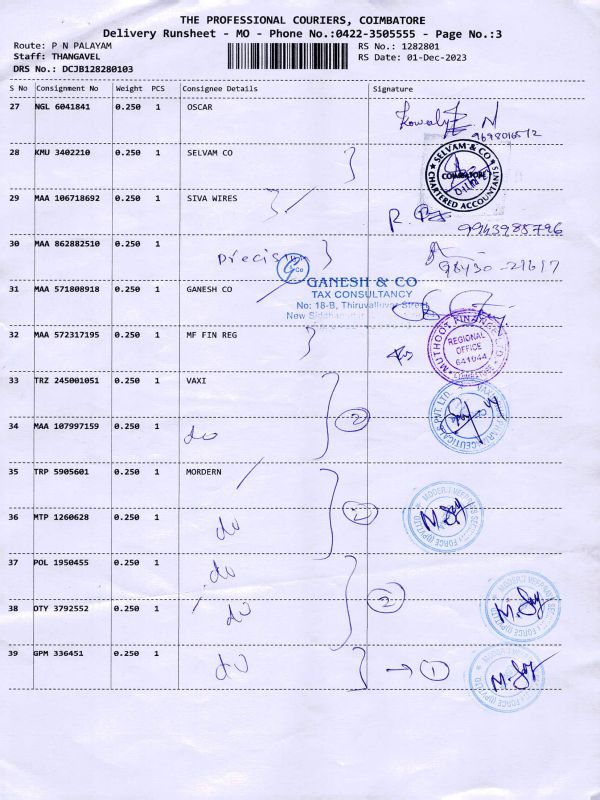 THE PROFESSIONAL COURIERS, COIMBATORE
Delivery Runsheet - MO - Phone No.:0422-3505555 - Page No.:3
Route: P N PALAYAM
RS No.: 1282801
Staff: THANGAVEL
RS Date: 01-Dec-2023
DRS No.: DCJB128280103
S No Consignment No Weight PCS Consignee Details Signature
27 NGL 6041841 0.250 1 OSCAR
28 KMU 3402210 0.250 1 SELVAM CO
SELVAM & CO
COIMBATORE
CHARTERED ACCOUNTANTS
29 MAA 106718692 0.250 1 SIVA WIRES
9943985796
30 MAA 862882510 0.250 1
31 MAA 571808918 0.250 1 GANESH CO
GANESH & CO
TAX CONSULTANCY
No: 18-B, Thiruvalluvar Street
32 MAA 572317195 0.250 1 MF FIN REG
MUTHOOT FINANCE
REGIONAL
OFFICE
641044
COIMBATORE
33 TRZ 245001051 0.250 1 VAXI
2
34 MAA 107997159 0.250 1 do
35 TRP 5905601 0.250 1 MORDERN
36 MTP 1260628 0.250 1 do
2
37 POL 1950455 0.250 1 do
38 OTY 3792552 0.250 1 do
2
39 GPM 336451 0.250 1 do
→ 1